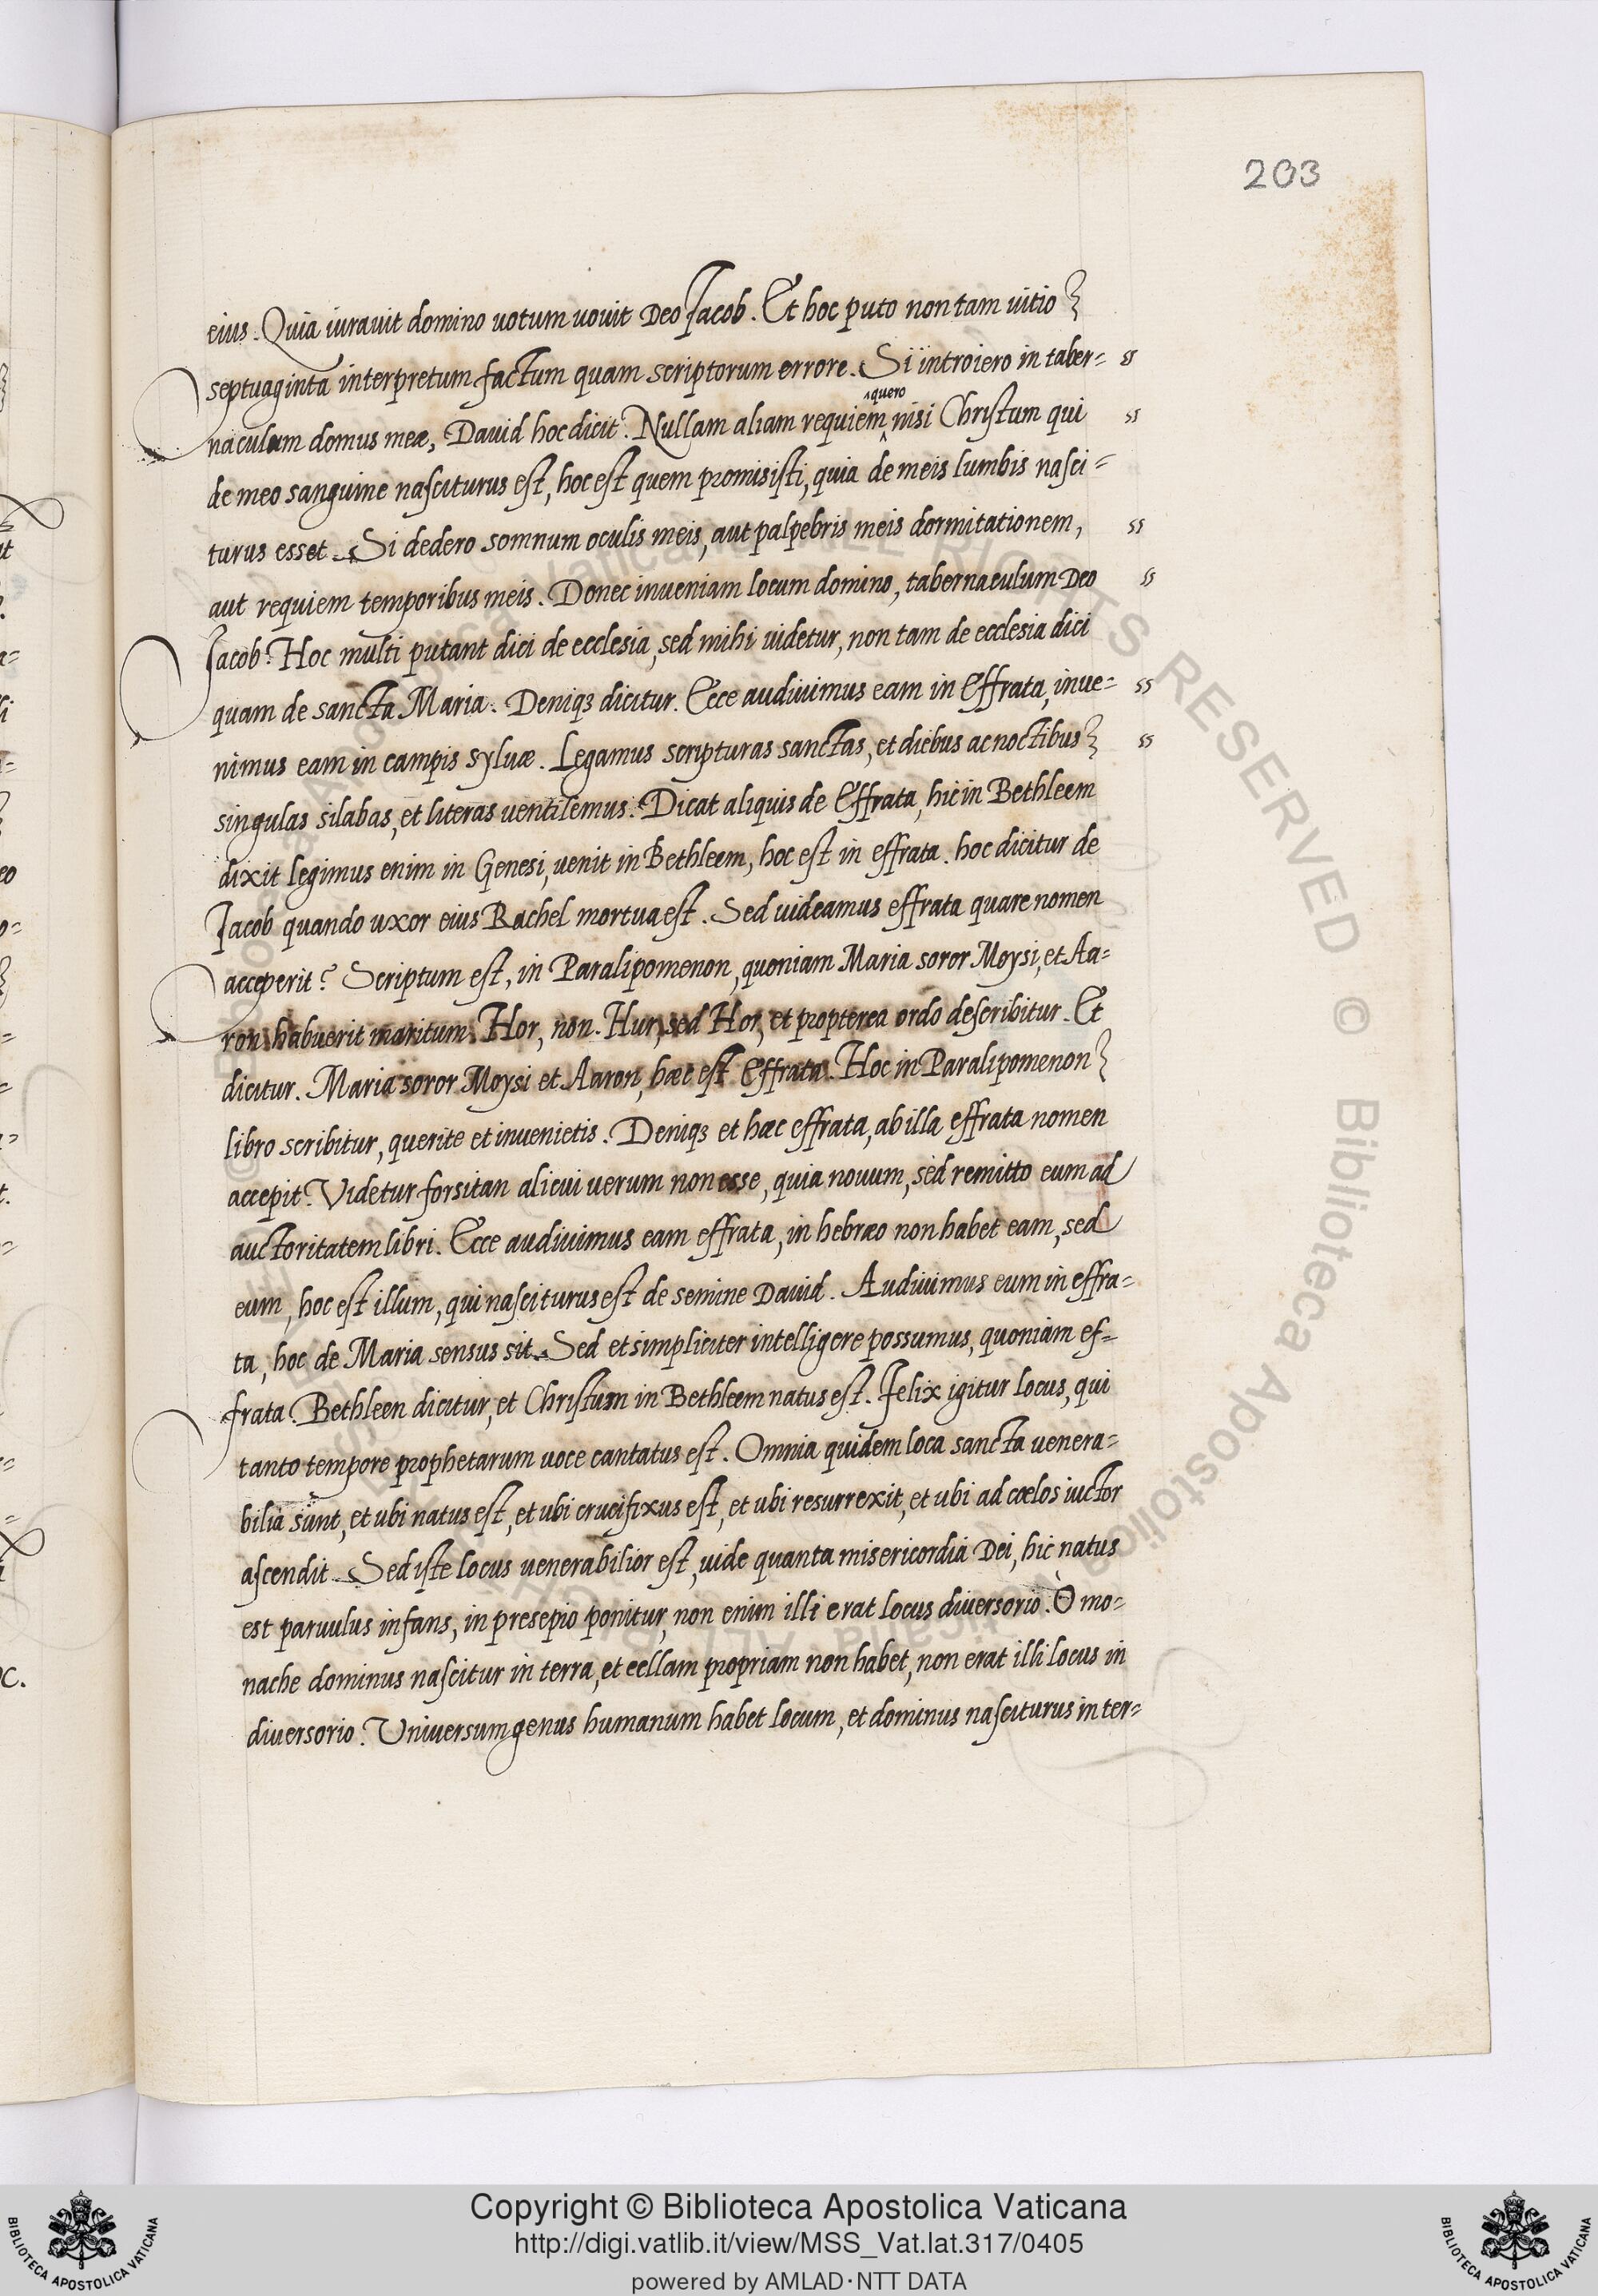 203
eius. Quia iuravit domino votum vovit Deo Jacob. Et hoc puto non tam vitio
septuaginta interpretum factum quam scriptorum errore. Si introiero in taber= ss
quero
naculum domus meæ, David hoc dicit. Nullam aliam requiem ‸ nisi Christum qui ss
de meo sanguine nasciturus est, hoc est quem promisisti, quia de meis lumbis nasci=
turus esset. Si dedero somnum oculis meis, aut palpebris meis dormitationem, ss
aut requiem temporibus meis. Donec inveniam locum domino, tabernaculum Deo ss
Jacob. Hoc multi putant dici de ecclesia, sed mihi videtur, non tam de ecclesia dici
quam de sancta Maria. Deniqꝫ dicitur. Ecce audivimus eam in Effrata, inve= ss
nimus eam in campis sylvæ. Legamus scripturas sanctas, et diebus ac noctibus ss
singulas silabas, et literas ventilemus. Dicat aliquis de Effrata, hic in Bethleem
dixit legimus enim in Genesi, venit in Bethleem, hoc est in effrata. hoc dicitur de
Jacob quando uxor eius Rachel mortua est. Sed videamus effrata quare nomen
acceperit? Scriptum est, in Paralipomenon, quoniam Maria soror Moysi, et Aa=
ron habuerit maritum Hor, non. Hur, sed Hor, et propterea ordo describitur. Et
dicitur. Maria soror Moysi et Aaron, hæc est Effrata. Hoc in Paralipomenon
libro scribitur, querite et invenietis. Deniqꝫ et hæc effrata, ab illa effrata nomen
accepit. Videtur forsitan alicui verum non esse, quia novum, sed remitto eum ad
auctoritatem libri. Ecce audivimus eam effrata, in hebræo non habet eam, sed
eum, hoc est illum, qui nasciturus est de semine David. Audivimus eum in effra=
ta, hoc de Maria sensus sit. Sed et simpliciter intelligere possumus, quoniam ef=
frata. Bethleen dicitur, et Christum in Bethleem natus est. Felix igitur locus, qui
tanto tempore prophetarum voce cantatus est. Omnia quidem loca sancta venera=
bilia sunt, et ubi natus est, et ubi crucifixus est, et ubi resurrexit, et ubi ad cœlos iuctor
ascendit. Sed iste locus venerabilior est, vide quanta misericordia Dei, hic natus
est parvulus infans, in presepio ponitur, non enim illi erat locus diversorio. O mo=
nache dominus nascitur in terra, et cellam propriam non habet, non erat illi locus in
diversorio. Universum genus humanum habet locum, et dominus nasciturus in ter=
Copyright © Biblioteca Apostolica Vaticana
http://digi.vatlib.it/view/MSS_Vat.lat.317/0405
powered by AMLAD·NTT DATA
BIBLIOTECA APOSTOLICA VATICANA
BIBLIOTECA APOSTOLICA VATICANA